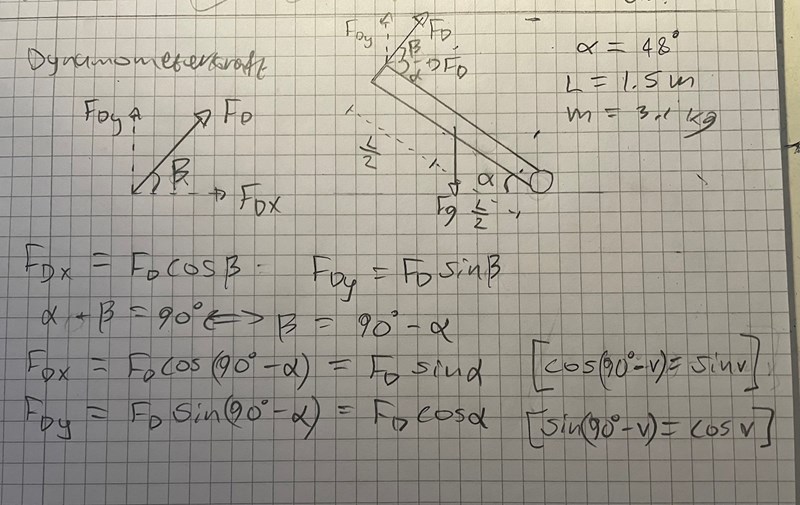 Dynamometerkraft
F_Dy
F_D
β
F_Dx
F_Dy
F_D
β
α
F_D
L/2
α
F_g
L/2
α = 48°
L = 1.5 m
m = 3.1 kg
F_Dx = F_D cosβ. F_Dy = F_D sinβ
α + β = 90° <=> β = 90° - α
F_Dx = F_D cos(90° - α) = F_D sinα [cos(90°-v) = sinv]
F_Dy = F_D sin(90° - α) = F_D cosα [sin(90°-v) = cosv]